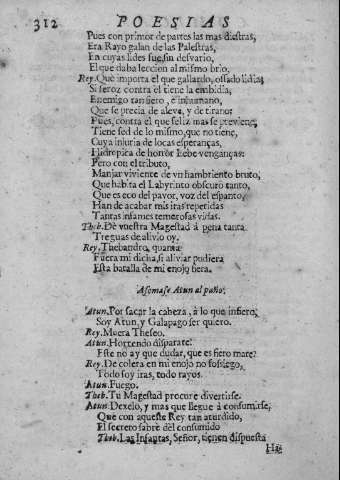 312 POESIAS
Pues con primor de partes las mas diestras,
Era Rayo galan de las Palestras,
En cuyas lides fue, sin desvario,
El que daba leccion al mismo brio,
Rey. Que importa el que gallardo, ossado lidia,
Si feroz contra èl tiene la embidia,
Enemigo tan fiero, è inhumano,
Que se precia de aleve, y de tirano:
Pues, contra el que feliz mas se previene,
Tiene sed de lo mismo, que no tiene,
Cuya injuria de locas esperanças,
Hidropica de horror bebe venganças:
Pero con el tributo,
Manjar viviente de vn hambriento bruto,
Que habita el Labyrinto obscuro tanto,
Que es eco del pavor, voz del espanto,
Han de acabar mis iras repetidas
Tantas infames temerosas vidas.
Theb. Dè vuestra Magestad à pena tanta
Treguas de alivio oy.
Rey. Thebandro, quanta
Fuera mi dicha, si aliviar pudiera
Esta batalla de mi enojo fiera.
Asomase Atun al paño.
Atun. Por sacar la cabeza, à lo que infiero,
Soy Atun, y Galapago ser quiero.
Rey. Muera Theseo.
Atun. Horrendo disparate!
Este no ay que dudar, que es fiero mate?
Rey. De colera en mi enojo no sossiego,
Todo soy iras, todo rayos.
Atun. Fuego.
Theb. Tu Magestad procure divertirse.
Atun. Dexelo, y mas que llegue à consumirse,
Que con aqueste Rey tan aturdido,
El secreto sabrè del consumido
Theb. Las Infantas, Señor, tienen dispuesta
Ha-